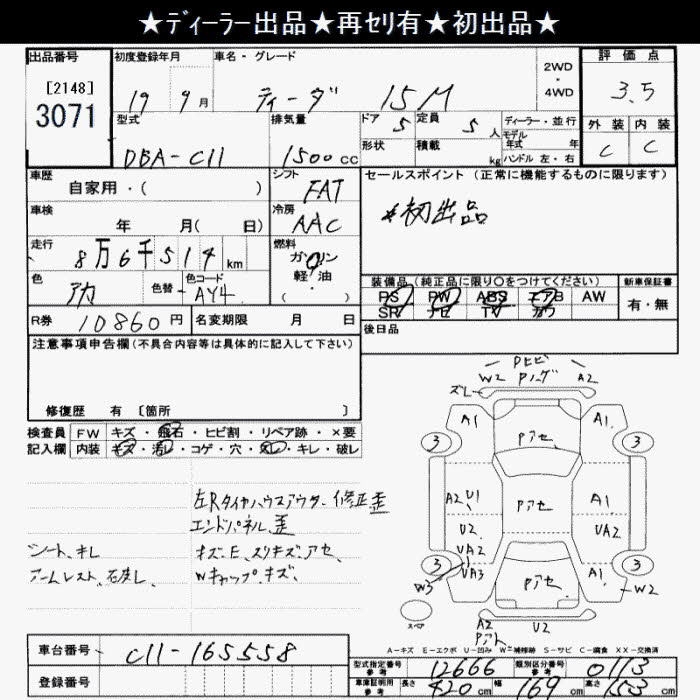 ★ディーラー出品★再セリ有★初出品★
出品番号
[2148]
3071
初度登録年月
19 9月
車名・グレード
ティーダ 15M
2WD
・
4WD
評価点
3.5
外装 内装
C C
型式
DBA-C11
排気量
1500cc
ドア 5
形状
定員 5人
積載 kg
ディーラー・並行
モデル年式 年
ハンドル 左・右
車歴
自家用・( )
シフト
FAT
セールスポイント(正常に機能するものに限ります)
初出品
車検
年 月( 日)
冷房
AAC
走行
8万6千514km
燃料
ガソリン
軽・油
( )
色
アカ
色替
色コード
AY4
装備品(純正品に限り○をつけてください)
PS PW ABS エアB AW
SR ナビ TV カワ
新車保証書
有・無
R券 10860円
名変期限 月 日
後日品
注意事項申告欄(不具合内容等は具体的に記入して下さい)
修復歴 有 [箇所 ]
検査員
記入欄
FW キズ・飛石・ヒビ割・リペア跡・×要
内装 キズ・汚レ・コゲ・穴・スレ・キレ・破レ
左Rタイヤハウスアウター修正歪
エンドパネル歪
シート、キレ
キズ、E、スリキズ、アセ、
アームレスト、
Wキャップ、キズ、
W2 A2
ズレ
A1 A1
Pアセ
3 3
A2 U1
Pアセ
A1
U2 UA2
UA2
UA3
Pアセ
A1
3 3
W3 W2
スペア
A2
U2
A-キズ E-エクボ U-凹み W-補修跡 S-サビ C-腐食 XX-交換済
車台番号 C11-165558
登録番号
型式指定番号 参考 12666
類別区分番号 参考 0113
車庫証明用 参考 長さ 420cm 幅 169cm 高さ 153cm